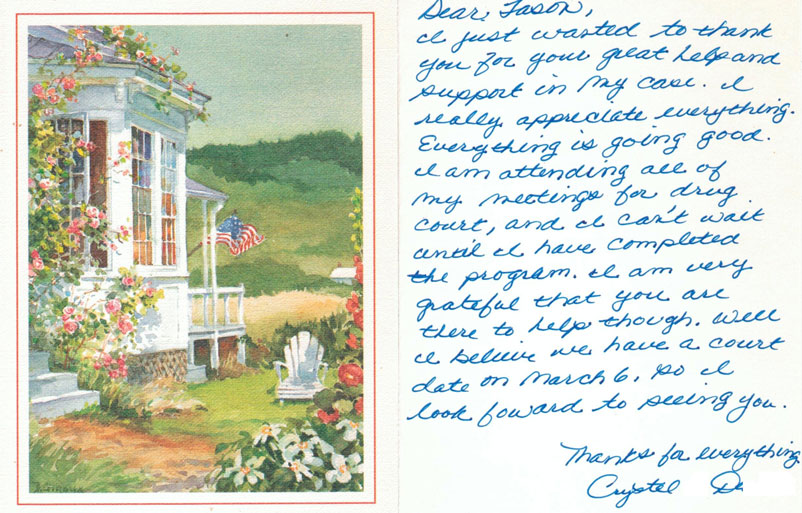 Dear Jason,
I just wanted to thank
you for your great help and
support in my case. I
really appreciate everything.
Everything is going good.
I am attending all of
my meetings for drug
court, and I can't wait
until I have completed
the program. I am very
grateful that you are
there to help though. Well
I believe we have a court
date on March 6, so I
look foward to seeing you.
Thanks for everything
Crystel D